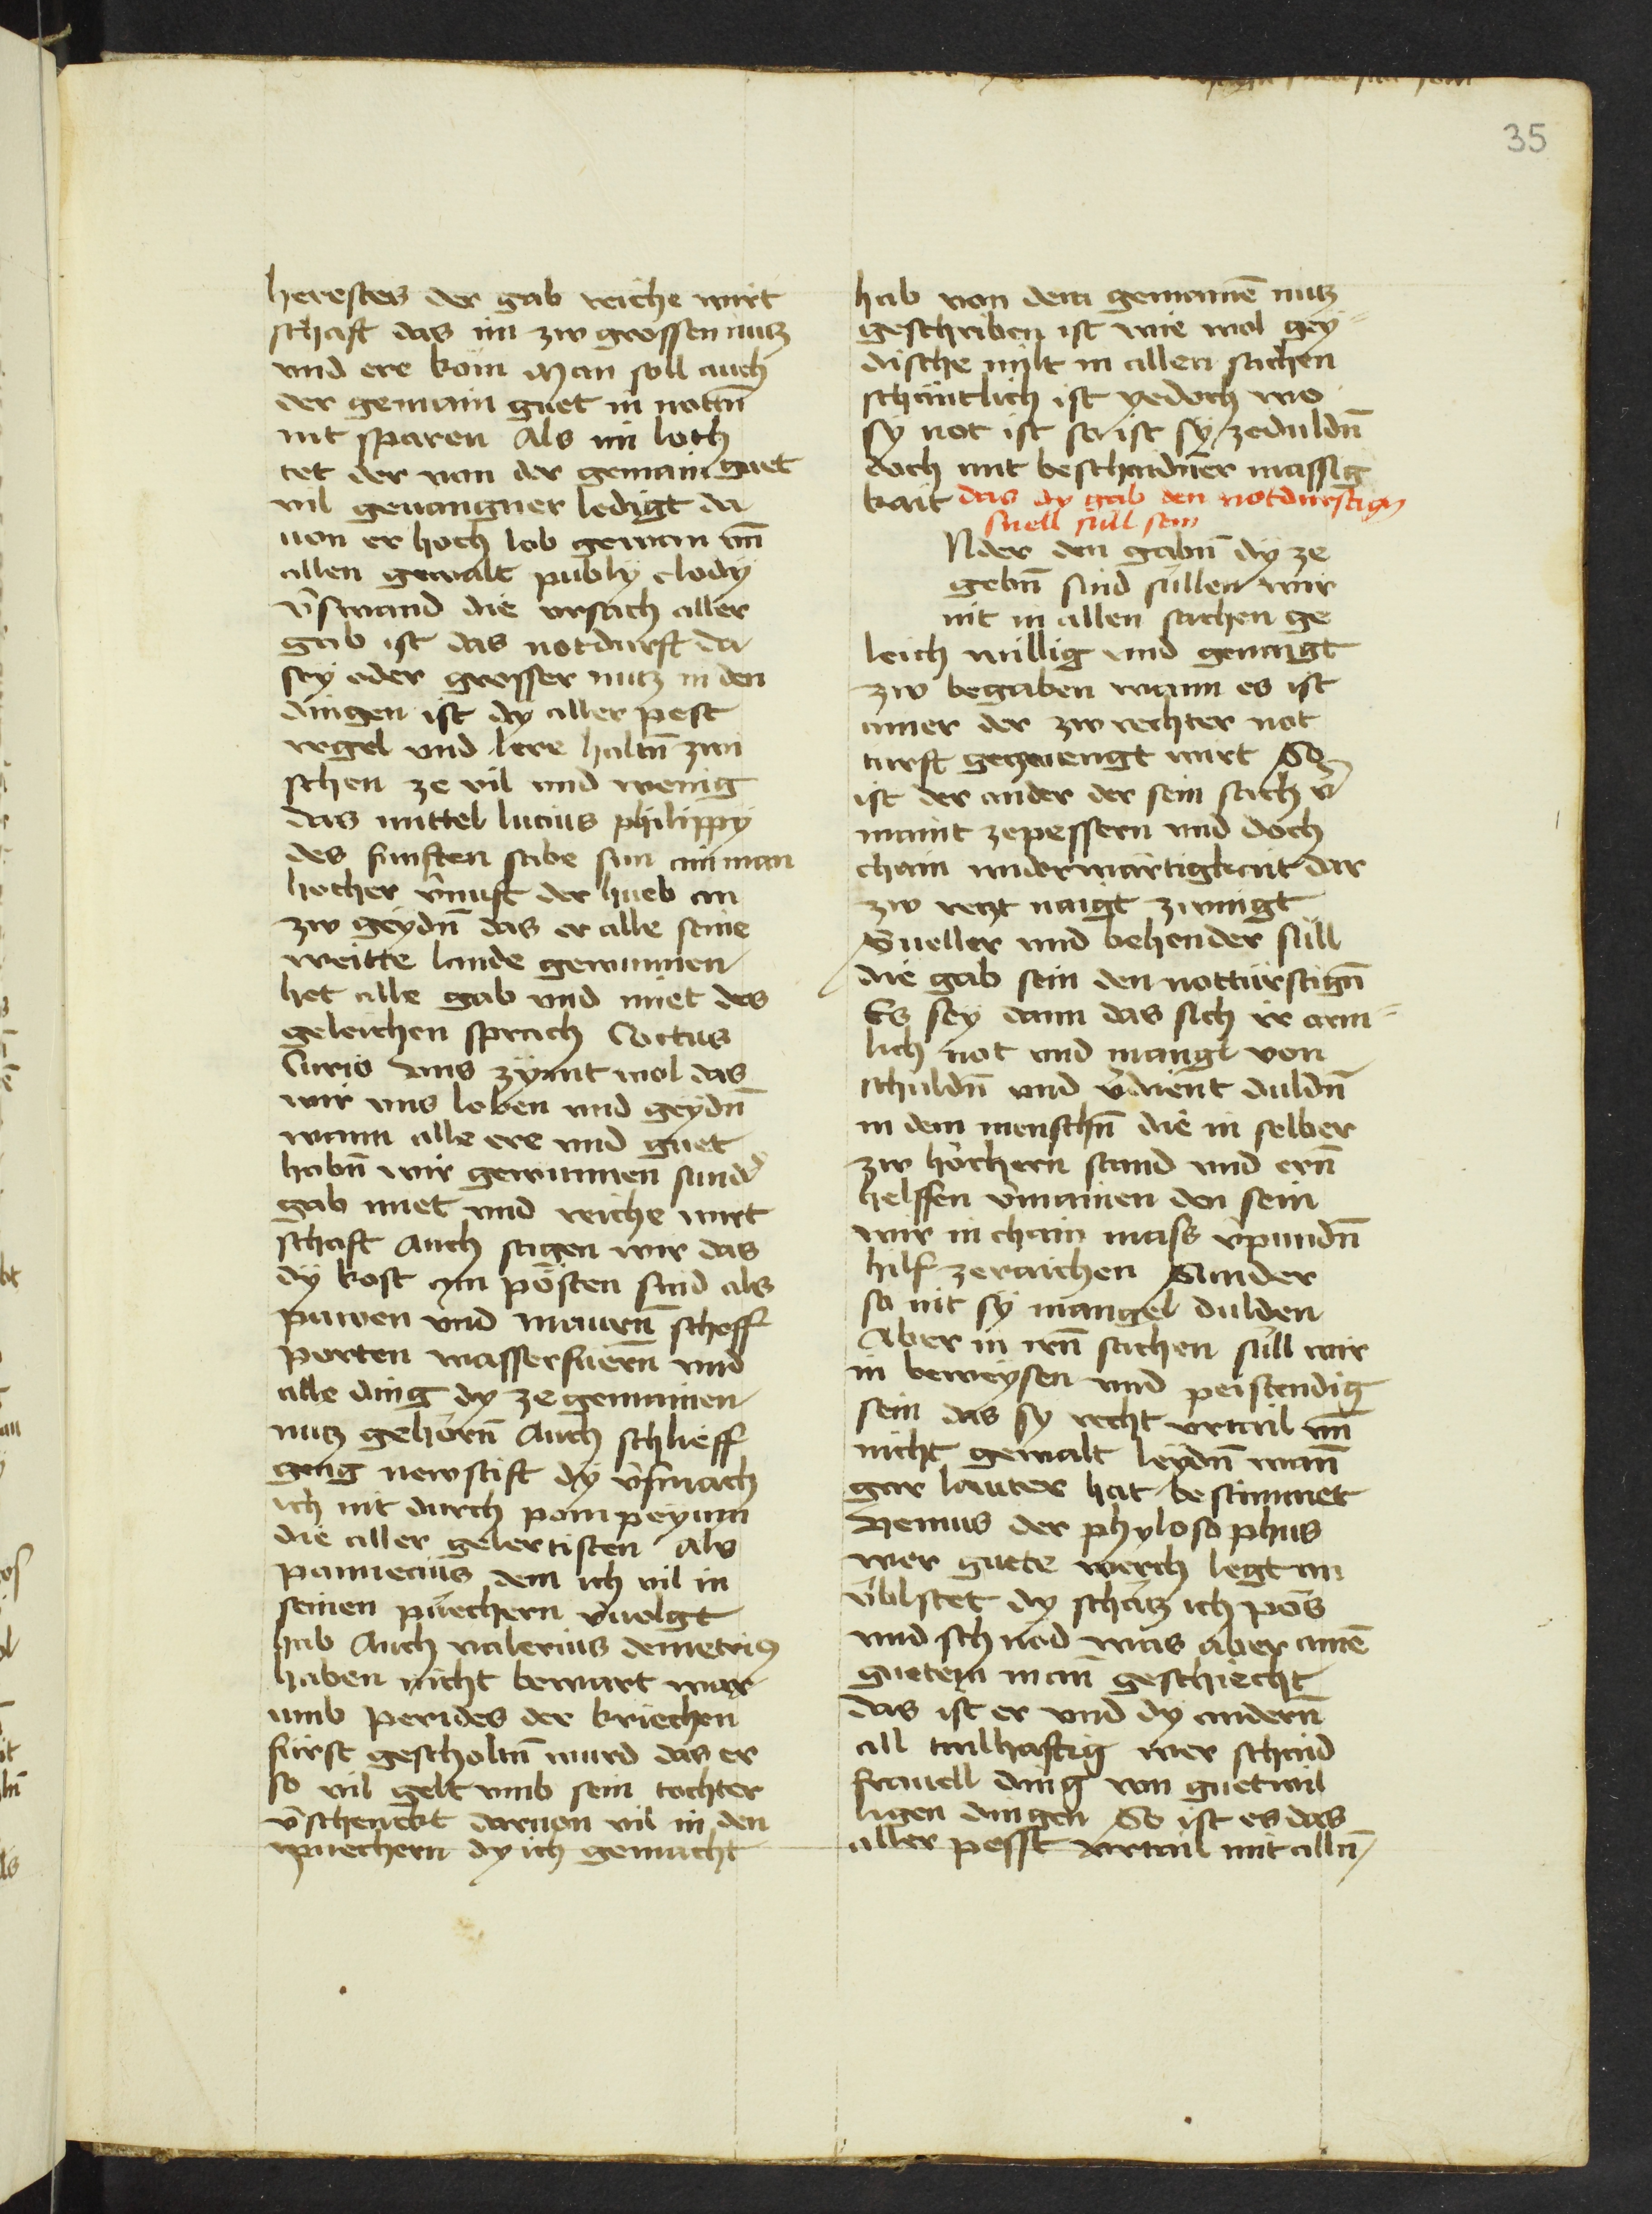 35
herestes der gab reiche wirt
schaft das im zw grossen nutz
vnd ere kom Man soll auch
der gemain guet in notn̄
nit sparen Als im loch
tet der von der gemain guet
vil geuangner ledigt da
uon er hoch lob gewan vn̄
allen gewalt publÿ clodÿ
v̄swand die vrsach aller
gab ist das notdurft da
sey oder grosser nutz in den
dingen ist dy aller pest
regel vnd lere haltn̄ zwi
schen ze vil vnd wenig
das mittel lucius philippÿ
des funften sabe sun ain man
hocher v̄nuft der hueb an
zw geÿdn̄ das er alle seine
weitte lande gewunnen
het alle gab vnd miet des
geleichen sprach Coctus
Curio Vns zÿmt wol das
wir vns loben vnd geÿdn̄
wann alle ere vnd guet
habn̄ wir gewunnen sund̄
gab miet vnd reiche wirt
schaft Auch sagen wir das
dÿ kost am pösten sind als
pawen vnd mawrn̄ scheff
porten wasserfuern̄ vnd
alle ding dy ze gemainen
nutz gehörn̄ Auch schlieff
geng newstift dÿ v̄smach
ich nit durch pompeyum
die aller gelertisten Als
pannecius dem ich vil in
seinen püechern v̄uolgt
hab Auch valerius demetriꝰ
haben nicht bewart war
umb perides der kriechen
fürst gescholtn̄ wurd das er
so vil gelt vmb sein tochter
v̄schenckt daruon vil in den
puechern dy ich gemacht
hab von dem gemainē nutz
geschriben ist wie wol gey
dische milt in allen sachen
schäntlich ist yedoch wo
sÿ not ist so ist sÿ zeduldn̄
doch mit beschaidner massig
kait das dy gab den notdurftigen
snell süll sein
Nder den gabn̄ dÿ ze
gebn̄ sind süllen wir
nit in allen sachen ge
leich willig vnd genaigt
zw begaben wann es ist
ainer der zw rechter not
turft gezwengt wirt So
ist der ander der sein sach v̄
maint zepessern vnd doch
chain widerwärtigkait dar
zw retzt naigt zwingt
Sneller vnd behender süll
die gab sein den nottürftign̄
Es sey dann das sich ir arm
lich not vnd mangl von
schuldn̄ vnd v̄dient duldn̄
in dem menschn̄ die in selber
zw höchern stand vnd ern̄
helffen v̄mainen den sein
wir in chain mass v̄pundn̄
hilf zeraichen Sunder
so nit sÿ mangel dulden
Aber in irn̄ sachen süll wir
in beweÿsen vnd peistendig
sein das sy recht vrtail vn̄
nicht gewalt leÿdn̄ wan̄
gar lauter hat bestimmet
Henius der phylosophus
wer guete werch legt an
v̄blstet dy schatz ich pös
vnd schnod was aber ainē
guetem man̄ geschiecht
das ist er vnd dy andern̄
all tailhaftig wer schaid
frauell ding von guetwil
ligen dingen So ist es das
aller pesst vrtail mit alln̄